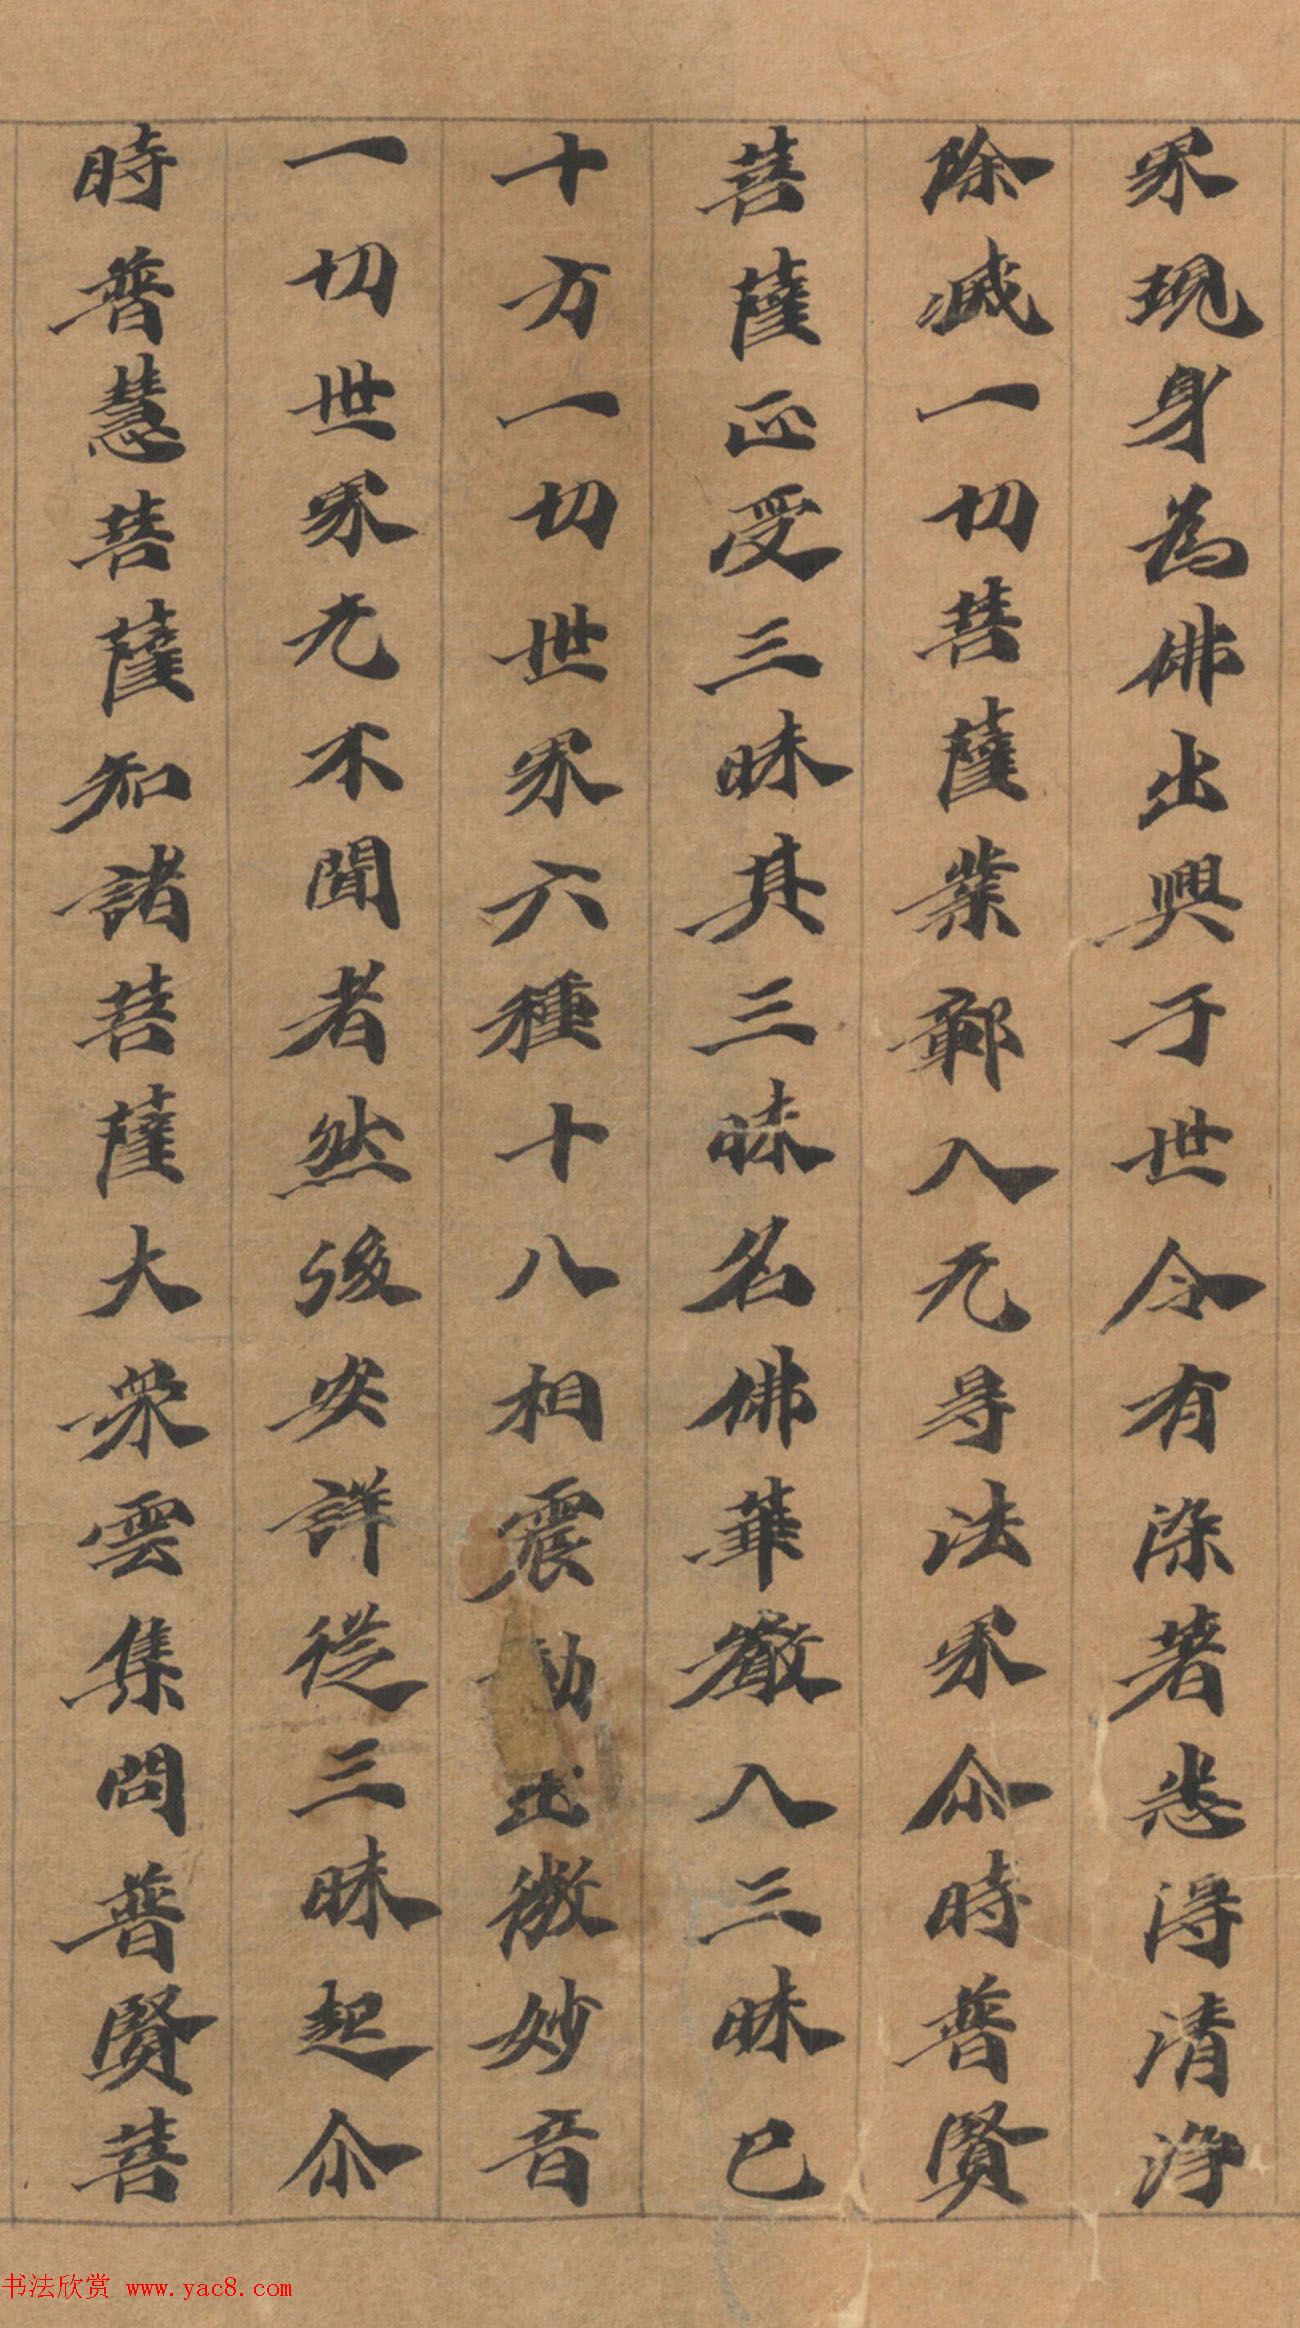 界現身為佛出興于世令有染著悉得清淨
除滅一切菩薩業鄣入无㝵法界尒時普賢
菩薩正受三昧其三昧名佛華嚴入三昧已
十方一切世界六種十八相震動出微妙音
一切世界无不聞者然後安詳從三昧起尒
時普慧菩薩知諸菩薩大眾雲集問普賢菩
书法欣赏 www.yac8.com